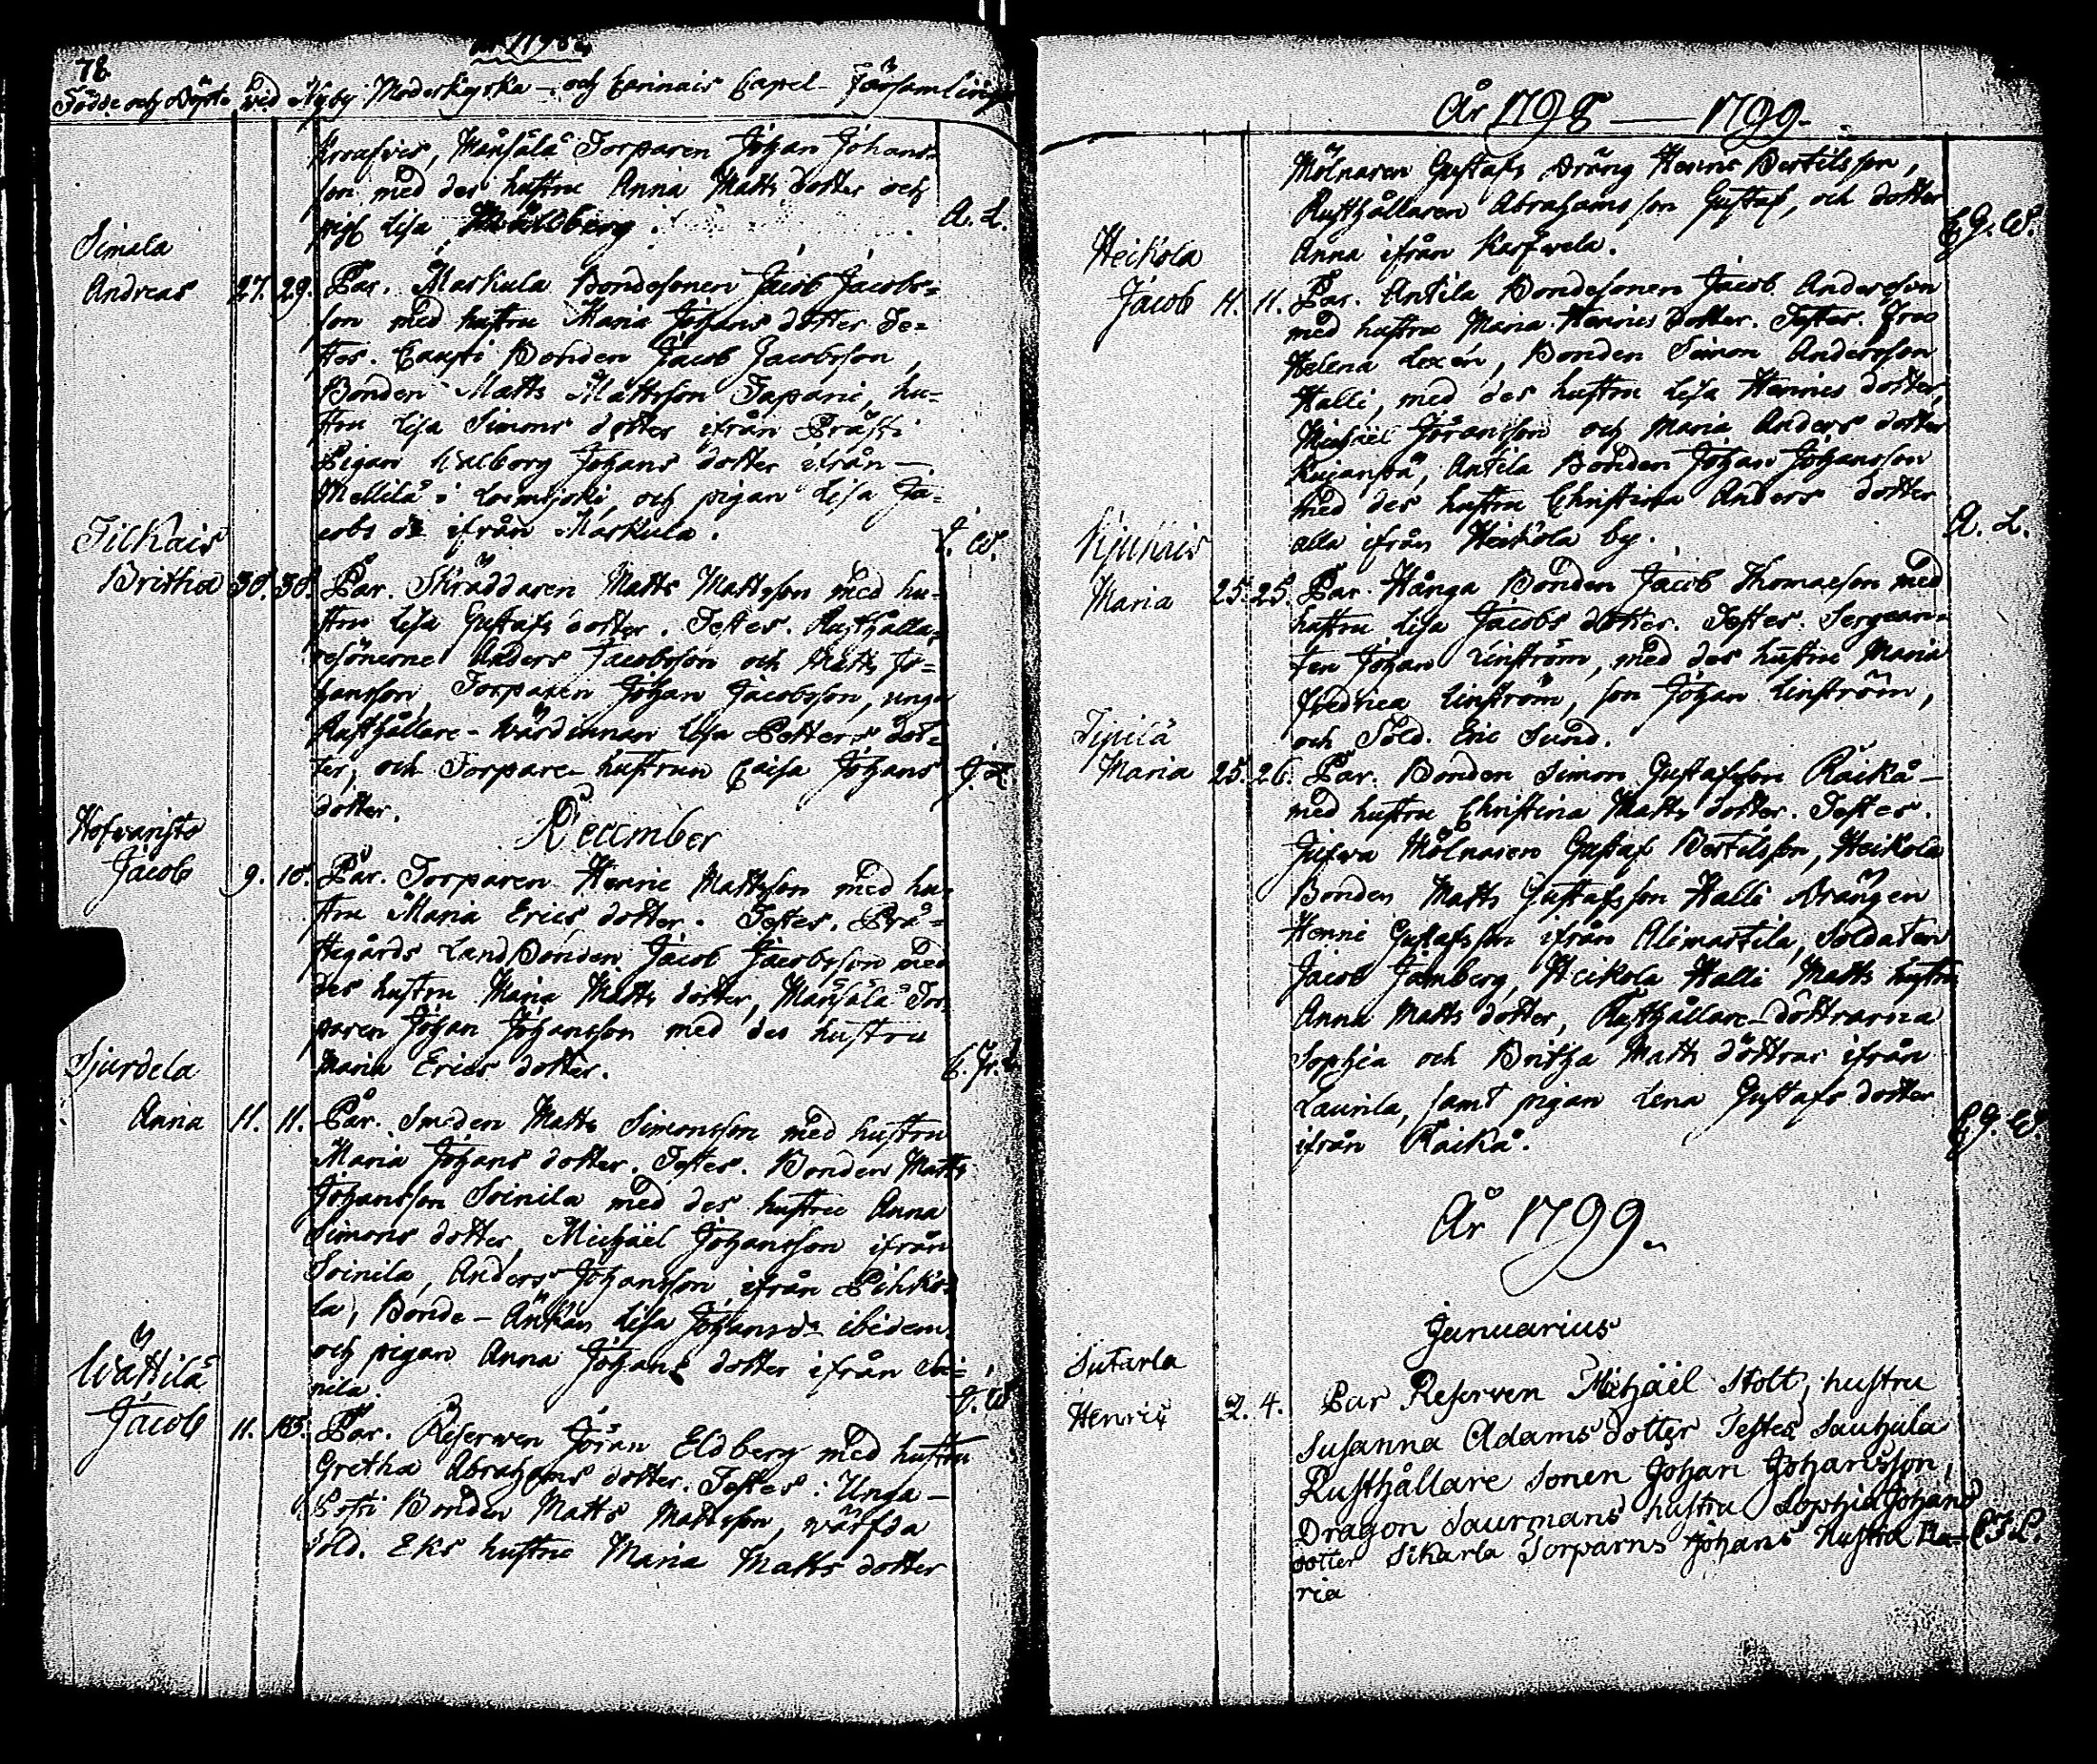 78.
År 1798.
Födde och Döpte wid Nyby Moderkyrka - och Carinais Capel - Församling
Mansälä Torparen Johan Johans=
son med des hustru Anna Matts dotter och
pig. Lisa Wahlberg.
A. L.
Simala
Andreas 27. 29. Par. Markula Bondesonen Jacob Jacobs=
son med hustru Maria Johans dotter Te=
stes. Caupi Bonden Jacob Jacobsson,
Bonden Matts Mattsson Tapani, hu=
stru Lisa Simons dotter ifrån Prästi
Pigan Walborg Johans dotter ifrån -
Mellilä i Loimijoki, och pigan Lisa Ja=
cobs dr ifrån Markula.
J. W.
Tilkais
Britha 30. 30. Par. Skräddaren Matts Mattsson med hu=
stru Lisa Gustafs dotter. Testes. Rusthålla=
resönerne Anders Jacobsson och Matts Jo=
hansson, Torparen Johan Jacobsson, unga
Rusthållare-Wärdinnan Lisa Petters dot=
ter, och Torpare-hustrun Caisa Johans
dotter.
J. L.
December
Hofwarista
Jacob 9. 10. Par. Torparen Henric Mattsson med hu=
stru Maria Erics dotter. Testes. Prä=
stegårds LandBonden Jacob Jacobsson med
des hustru Maria Matts dotter, Mansälä Tor=
paren Johan Johansson med des hustru
Maria Erics dotter.
Sjurdela
Anna 11. 11. Par. Smeden Matts Simonsson med hustru
Maria Johans dotter. Testes. Bonden Matts
Johansson Soinila med des hustru Anna
Simons dotter, Michaël Johansson ifrån
Soinila, Anders Johansson ifrån Pihko=
la, Bonde-Änkan Lisa Johansdr ibidem
och pigan Anna Johans dotter ifrån Soi=
nila.
J. W.
Wättilä
Jacob 11. 13. Par. Reserwen Jöran Eldberg med hustru
Gretha Abrahams dotter. Testes: Unga-
Posti Bonden Matts Mattsson, wärfda
Sold. Eks hustru Maria Matts dotter
År 1798 — 1799.
Mölnaren Gustafs dräng Henric Bertilsson,
Rusthållaren Abrahamsson Gustaf, och dotter
Anna ifrån Karfwela.
E. G. W.
Heikola
Jacob 11. 11. Par. Antila Bondesonen Jacob Andersson
med hustru Maria Henrics dotter. Testes. Fru
Helena Lexén, Bonden Simon Andersson
Halli, med des hustru Lisa Henrics dotter,
Michaël Jöransson och Maria Anders dotter
Kujanpä, Antila Bonden Johan Johansson
med des hustru Christina Anders dotter
alla ifrån Heikola by.
A. L.
Kjuhris
Maria 25. 25. Par. Hånga Bonden Jacob Thomaeson med
hustru Lisa Jacobs dotter. Testes. Sergean=
ten Johan Linström, med des hustru Maria
Fredrica Linström, son Johan Linström,
och Sold. Eric Sund.
Tipilä
Maria 25. 26. Par. Bonden Simon Gustafsson Raikå-
med hustru Christina Matts dotter. Testes.
Jufwa Mölnaren Gustaf Bertilsson, Heikola
Bonden Matts Gustafsson Halli Drängen
Henric Gustafsson ifrån Alimartila, Soldaten
Jacob Jernberg, Heikola Halli Matts hustru
Anna Matts dotter, Rusthållare-döttrarna
Sophia och Britha Matts döttrar ifrån
Laurila, samt pigan Lena Gustafs dotter
ifrån Raikå.
E. G. W.
År 1799.
Januarius
Sutarla
Henric 2. 4. Par Reserven Michaël Stolt, hustru
Susanna Adams dotter Testes Sauhula
Rusthållare Sonen Johan Johansson,
Dragon Saurmans hustru Sophia Johans
dotter Sikarla Torparns Johans Hustru Ma-
ria